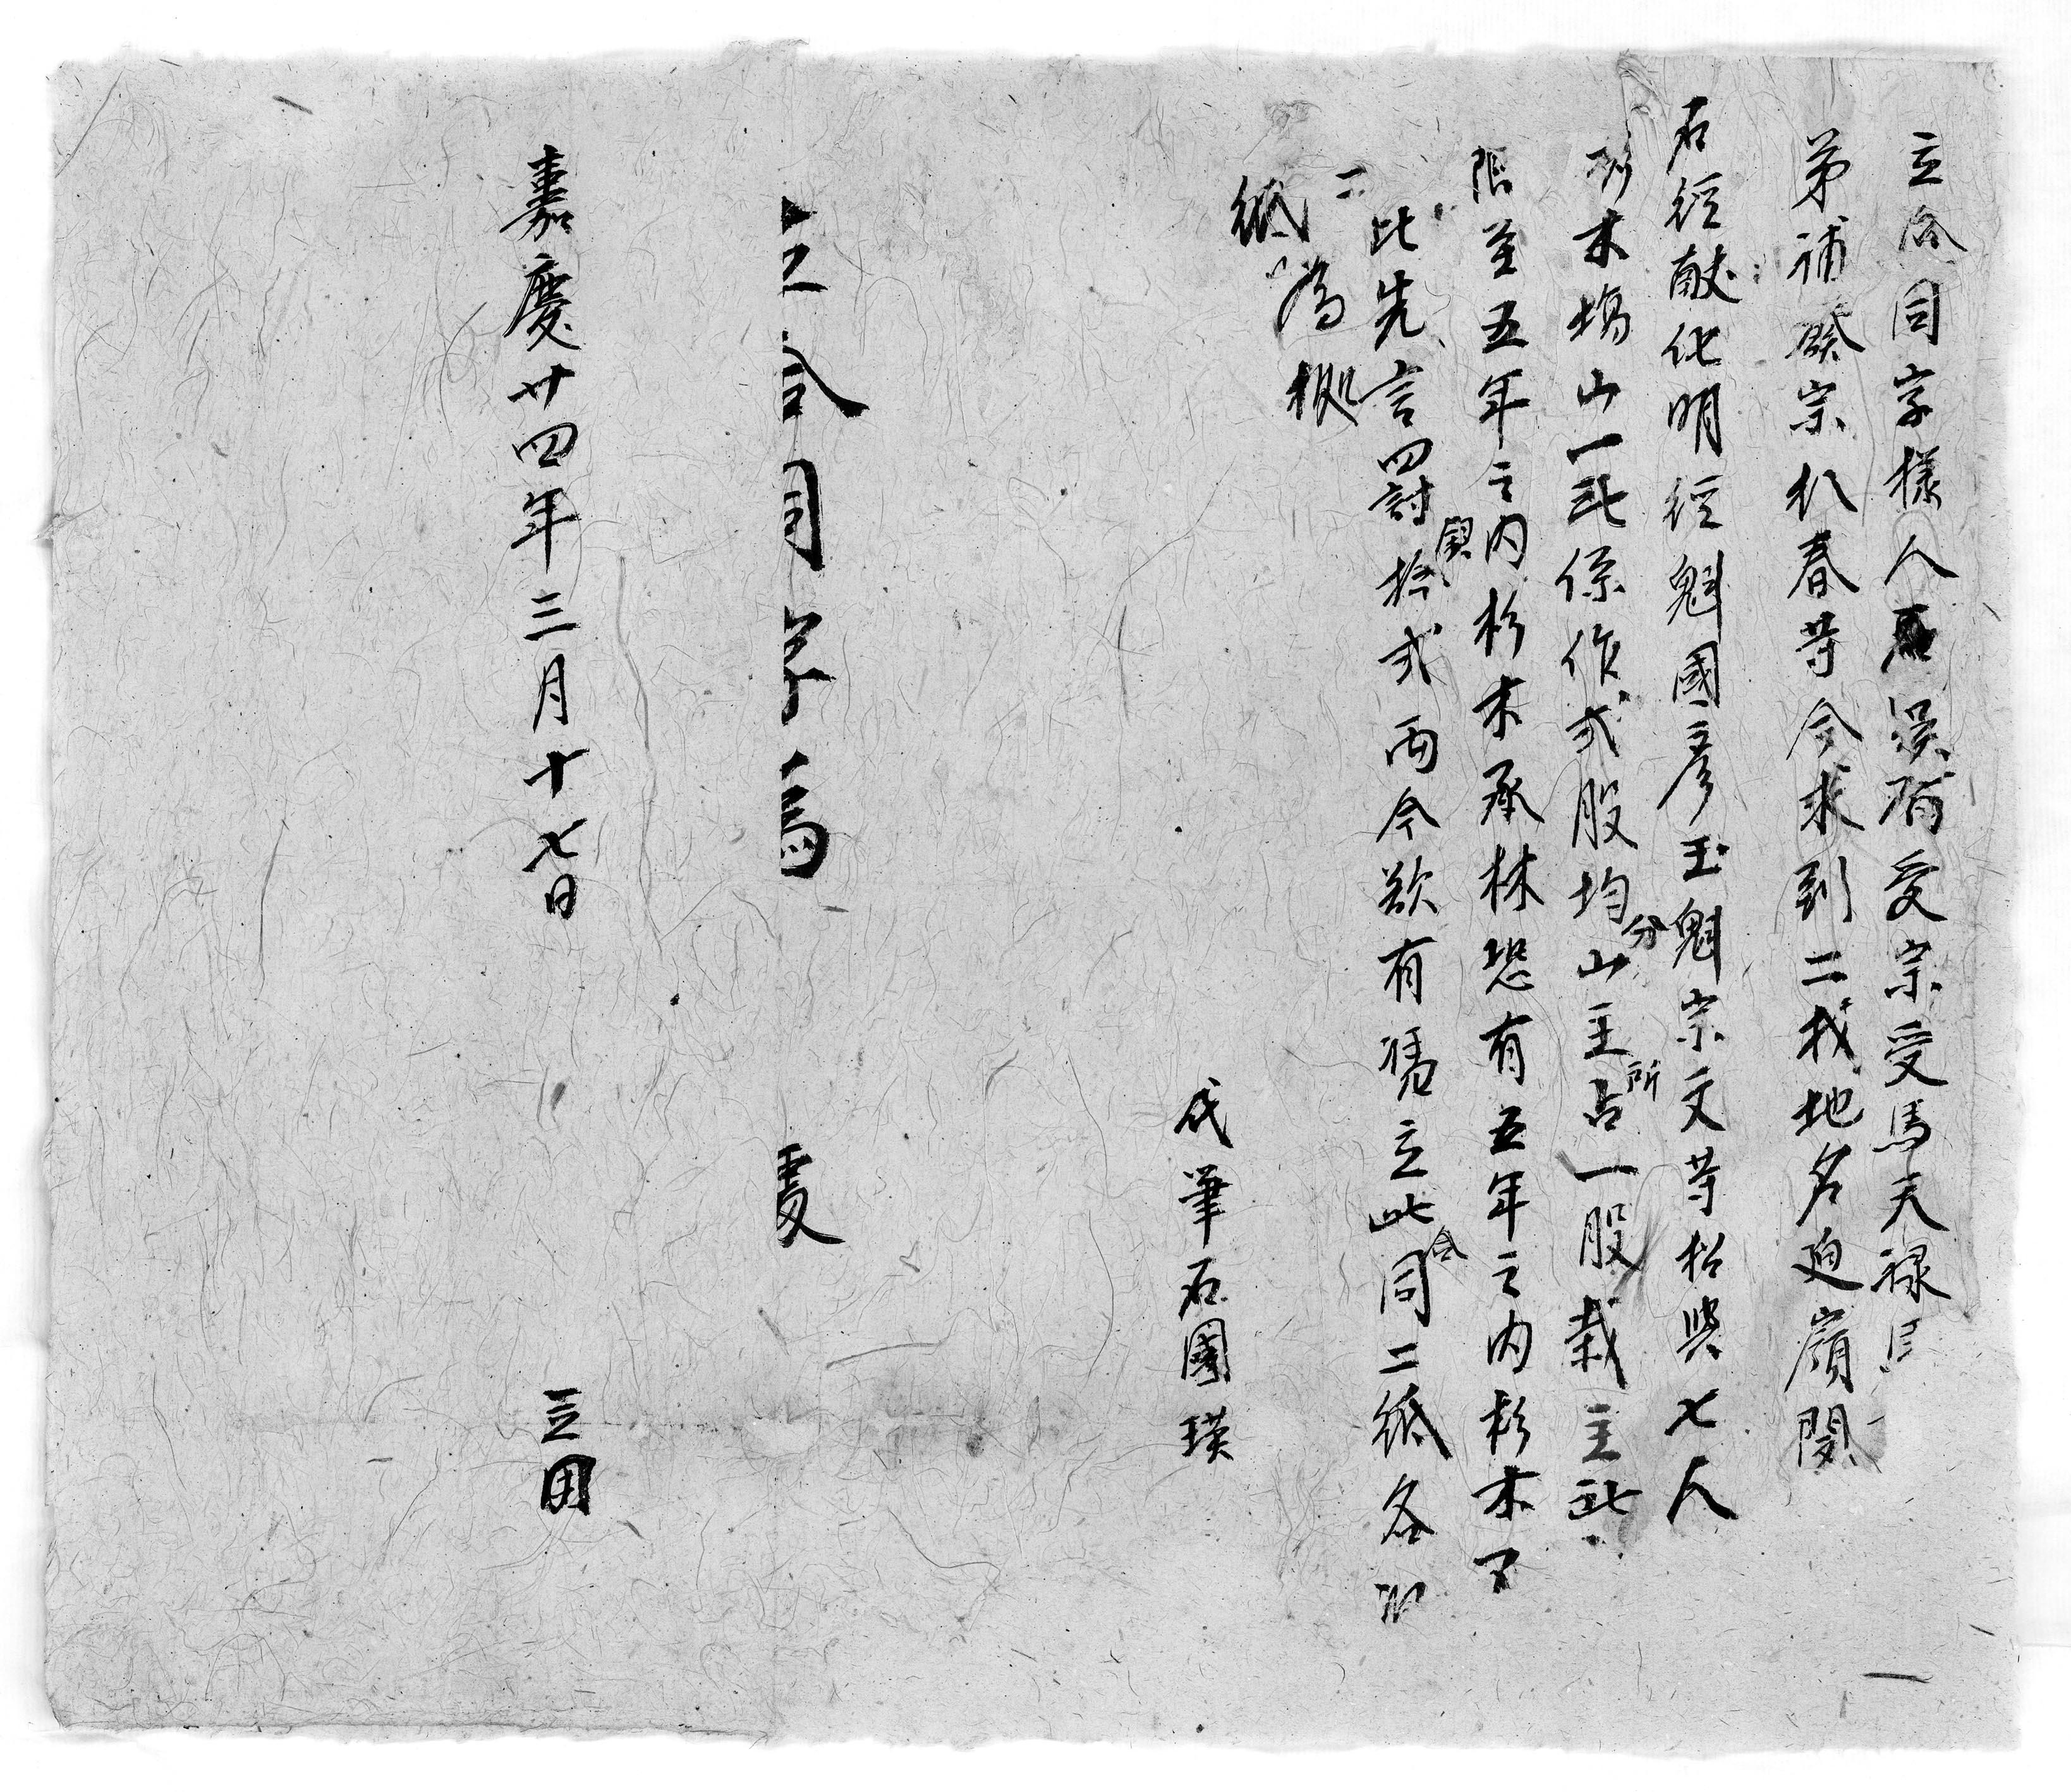 立合同字樣人石溪脩受宗受馬天祿
弟補癸宗朳春等今求到二找地名迫嶺関
石經献化明經魁國彥玉魁宗文等招與七人
杉木塲山一𠩄係作弍股均分山主所占一股栽主𠩄
限至五年之内杉木承林恐有五年之内杉木不
此先言四討銀拾弍両今欲有慿立此合同二紙各
一紙為㩀
代筆石國瑛
立合同字為
嘉慶廿四年三月十七日
立